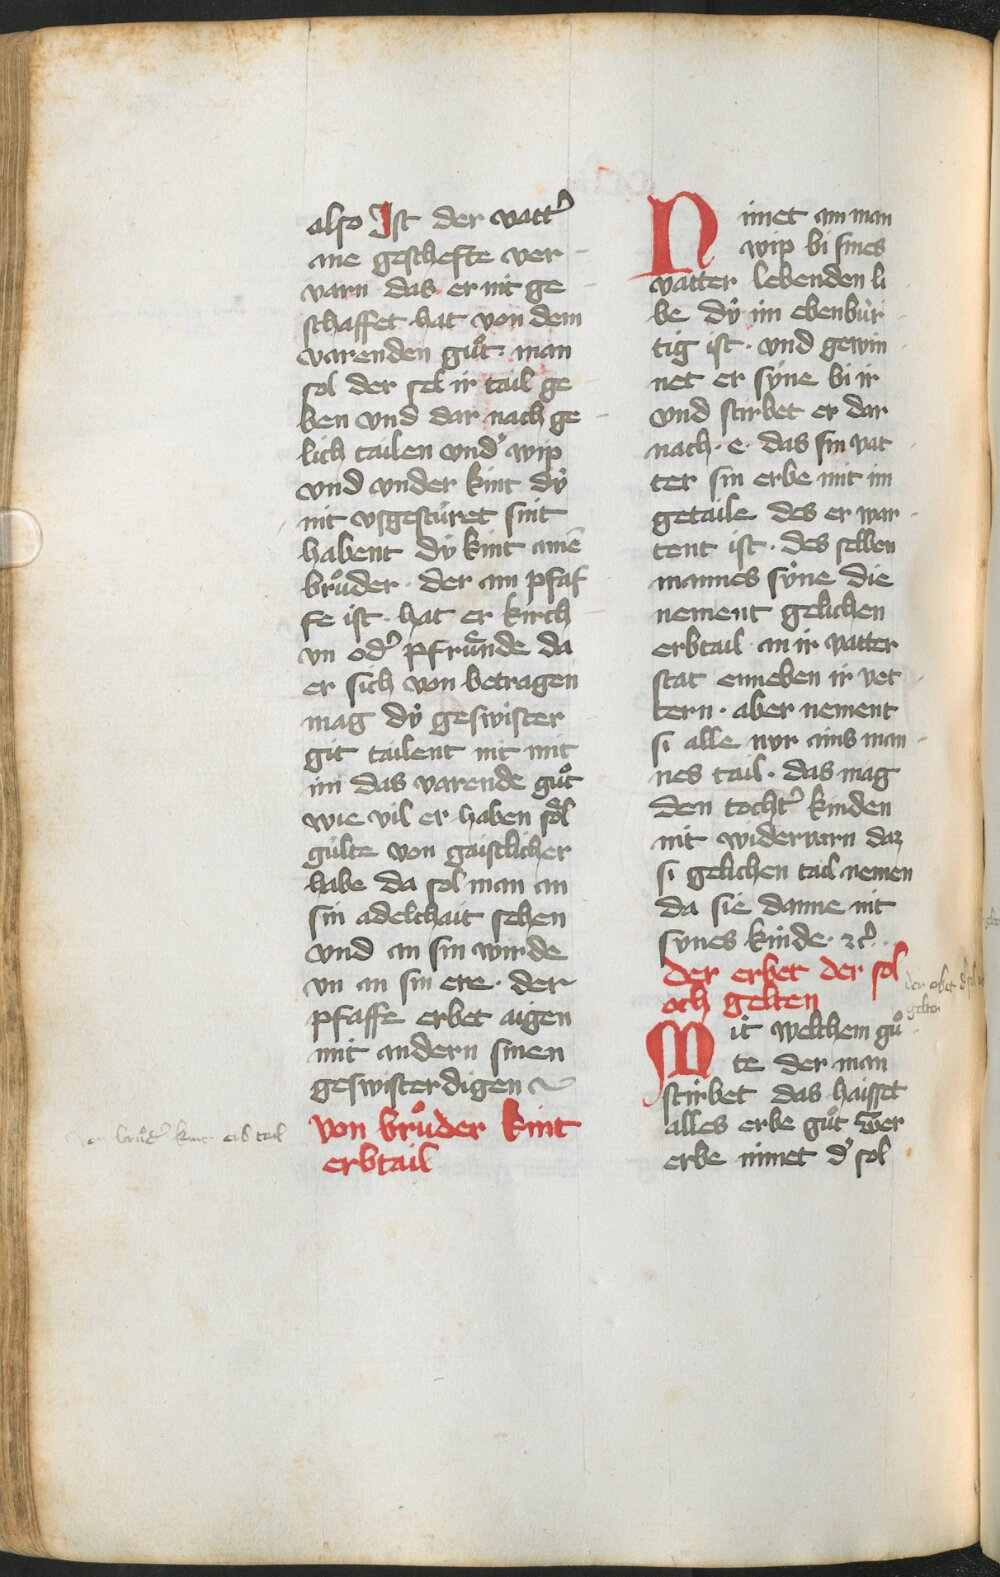 also Ist der vatt᾽
ane geschefte ver
varn das er nit ge
schaffet hat von dem
varenden guͦt · man
sol der sel ir tail ge
ben vnd dar nach ge
lich tailen vnd᾽ wip
vnd vnder kint dÿ
nit vsgestúret sint
habent dÿ kint ainē
bruͦder · der ain pfaf
fe ist · hat er kirch
vn od᾽ pfruͤnde da
er sich von betragen
mag dÿ geswister
git tailent nit mit
im das varende guͦt
wie vil er haben sol
gulte von gaistlicher
habe da sol man an
sin adelchait sehen
vnd an sin wirde
vn an sin ere · der
pfaffe erbet aigen
mit andern sinen
geswisterdigen
von bruͦder kint
erbtail
von bruͦd᾽ kint erb tail
Nimet ain man
wip bi sines
vatter lebenden li
be dÿ im ebenbúr
tig ist · vnd gewin
net er sýne bi ir
vnd stirbet er dar
nach · e · das sin vat
ter sin erbe mit im
getaile des er war
tent ist · des selben
mannes sýne die
nement gelichen
erbtail an ir vatter
stat enneben ir vet
tern · aber nement
si alle nvr ains man
nes tail · das mag
den tocht᾽ kinden
nit widervarn daz
si gelichen tail nemen
da sie danne nit
synes kinde · ⁊c᾽ ·
der erbet der sol
och gelten
der erbet d᾽ sol
gelten
Mit welchem guͦ
te der man
stirbet das haisset
alles erbe guͦt Wer
erbe nimet d᾽ sol